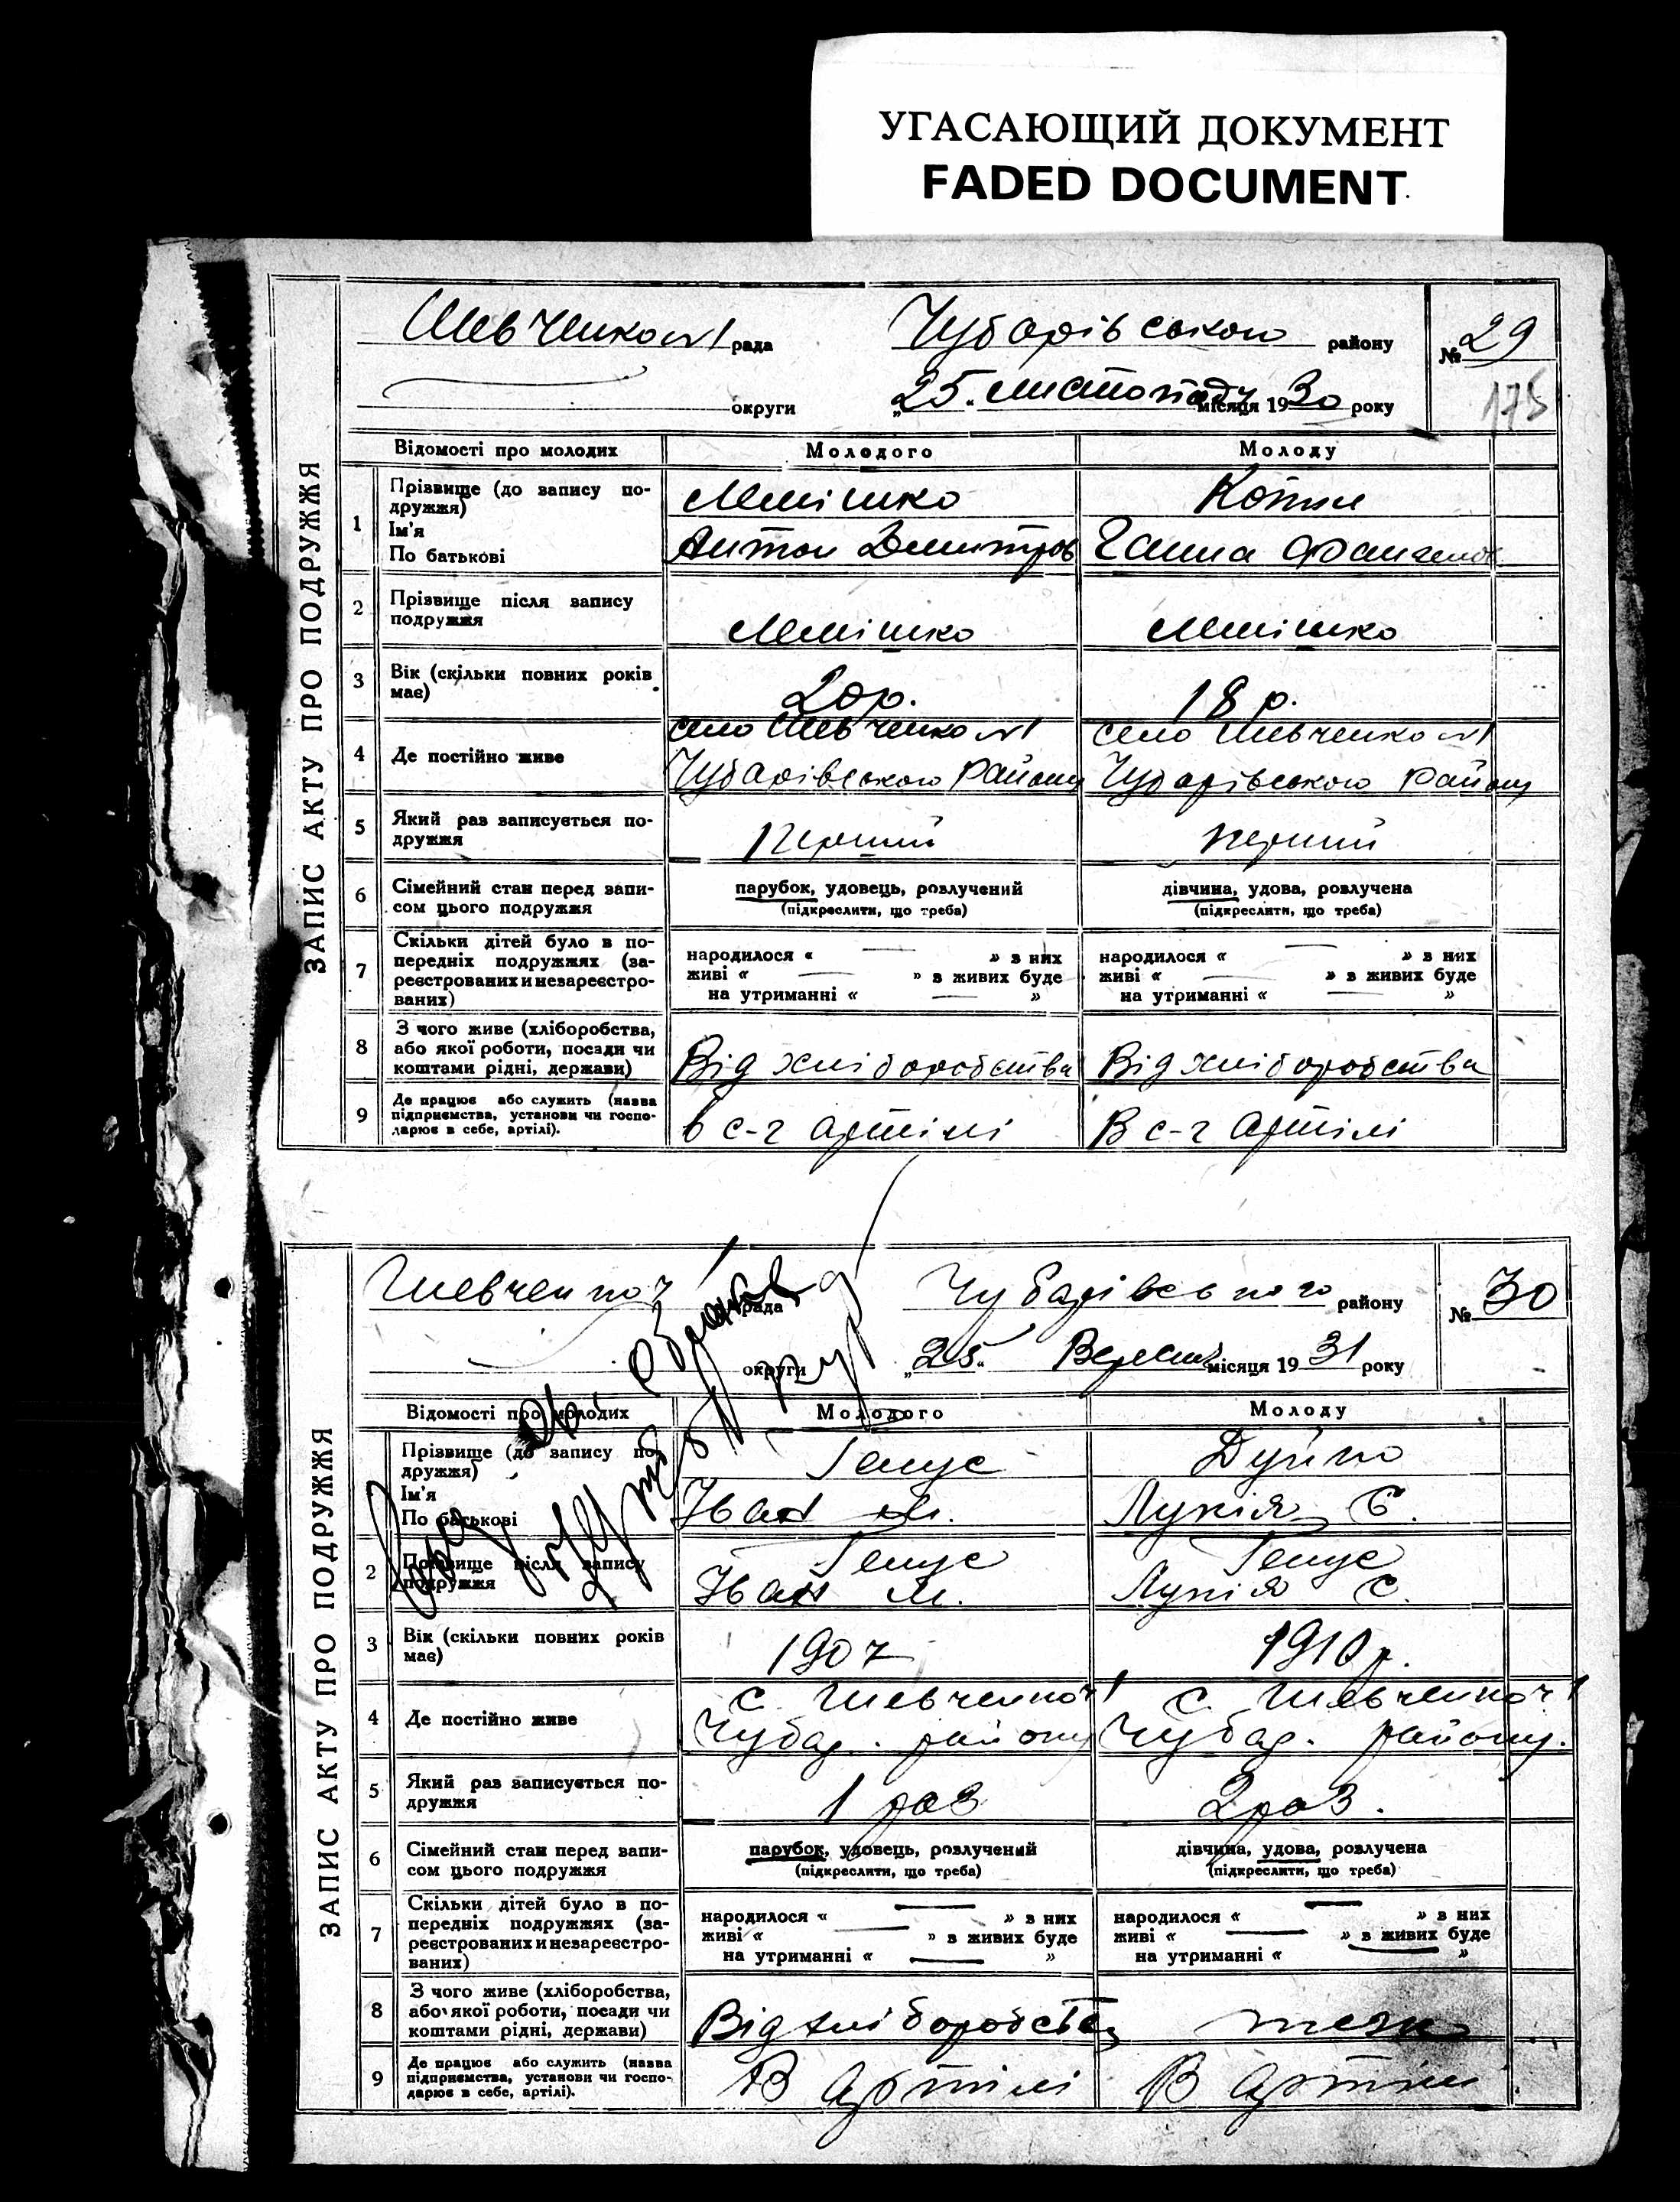 УГАСАЮЩИЙ ДОКУМЕНТ
FADED DOCUMENT
ЗАПИС АКТУ ПРО ПОДРУЖЖЯ
Шевченко №1 рада Чубарівського району № 29
округи „25“ листопаду місяця 1930 року 175
Відомості про молодих Молодого Молоду
1 Прізвище (до запису по-
дружжя)
Ім'я
По батькові
Антон Дмитров Ганна
2 Прізвище після запису
подружжя
3 Вік (скільки повних років
має)
20 р. 18 р.
4 Де постійно живе
село Шевченко №1 село Шевченко №1
Чубарівського Району Чубарівського Району
5 Який раз записується по-
дружжя
Перший перший
6 Сімейний стан перед запи-
сом цього подружжя
парубок, удовець, розлучений дівчина, удова, розлучена
(підкреслити, що треба) (підкреслити, що треба)
7 Скільки дітей було в по-
передніх подружжях (за-
реєстрованих и незареєстро-
ваних)
народилося « — » з них народилося « — » з них
живі « — » з живих буде живі « — » з живих буде
на утриманні « — » на утриманні « — »
8 З чого живе (хліборобства,
або якої роботи, посади чи
коштами рідні, держави)
Від хліборобства Від хліборобства
9 Де працює або служить (назва
підприємства, установи чи госпо-
дарює в себе, артілі).
в с-г артілі В с-г артілі
ЗАПИС АКТУ ПРО ПОДРУЖЖЯ
рада Чубарівського району № 30
округи „25“ Вересня місяця 1931 року
Відомості про молодих Молодого Молоду
Прізвище (до запису по-
дружжя)
Ім'я
По батькові
Іван М. Лукія Є.
2 Прізвище після запису
подружжя
Іван М. Лукія Є.
3 Вік (скільки повних років
має)
1907 1910 р.
4 Де постійно живе
с. с.
Чубар. району Чубар. району.
5 Який раз записується по-
дружжя
1 раз 2 раз.
6 Сімейний стан перед запи-
сом цього подружжя
парубок, удовець, розлучений дівчина, удова, розлучена
(підкреслити, що треба) (підкреслити, що треба)
7 Скільки дітей було в по-
передніх подружжях (за-
реєстрованих и незареєстро-
ваних)
народилося « — » з них народилося « — » з них
живі « — » з живих буде живі « — » з живих буде
на утриманні « — » на утриманні « »
8 З чого живе (хліборобства,
або якої роботи, посади чи
коштами рідні, держави)
Від хліборобства
9 Де працює або служить (назва
підприємства, установи чи госпо-
дарює в себе, артілі).
В артілі В артілі